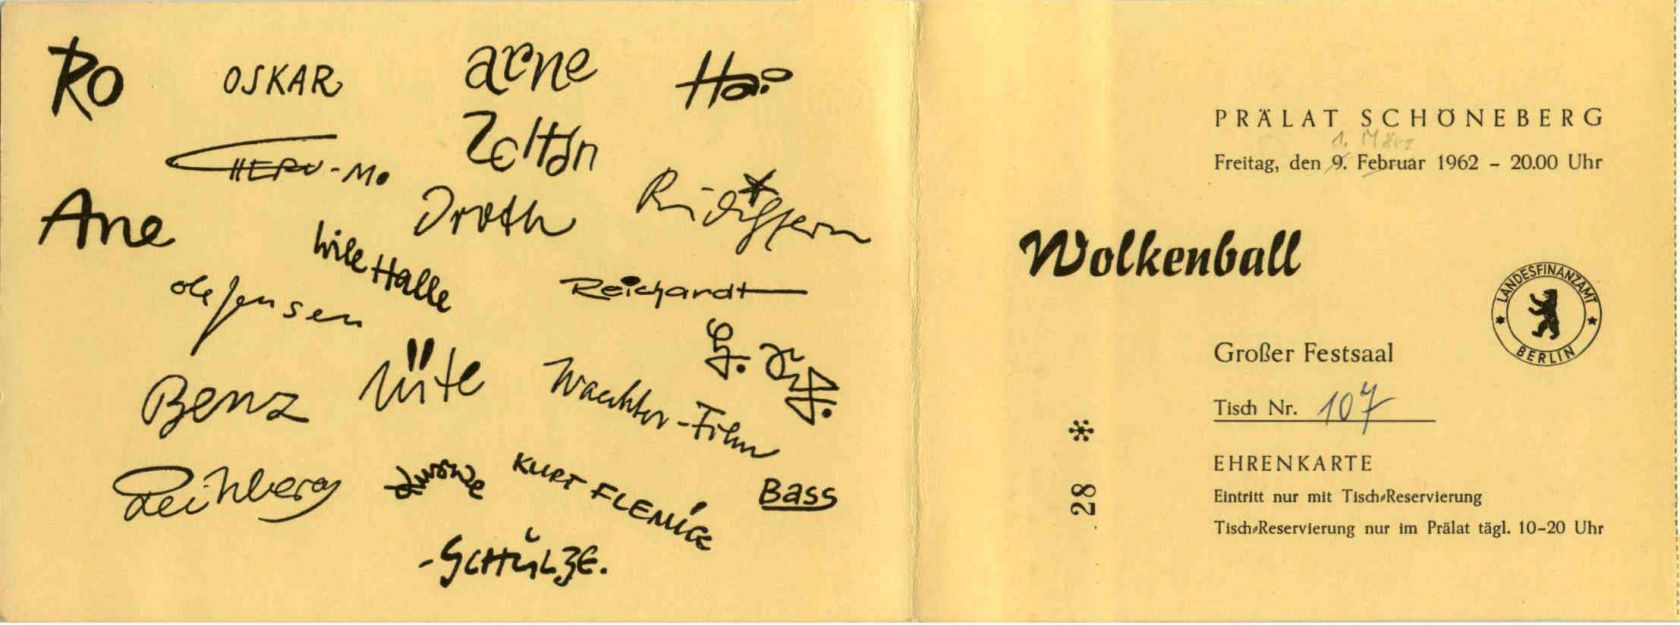 Ro
OSKAR
arne
Hai
Zoltán
CHERU-Mo
Ane
Droth
Hille Halle
ole Jensen
Reichardt
Benz
Wachter-Film
Reihberg
KURT FLEMIG
Bass
-SCHÜLZE.
PRÄLAT SCHÖNEBERG
1. März
Freitag, den 9. Februar 1962 - 20.00 Uhr
Wolkenball
LANDESFINANZAMT
BERLIN
Großer Festsaal
Tisch Nr. 107
28 *
EHRENKARTE
Eintritt nur mit Tisch-Reservierung
Tisch-Reservierung nur im Prälat tägl. 10-20 Uhr